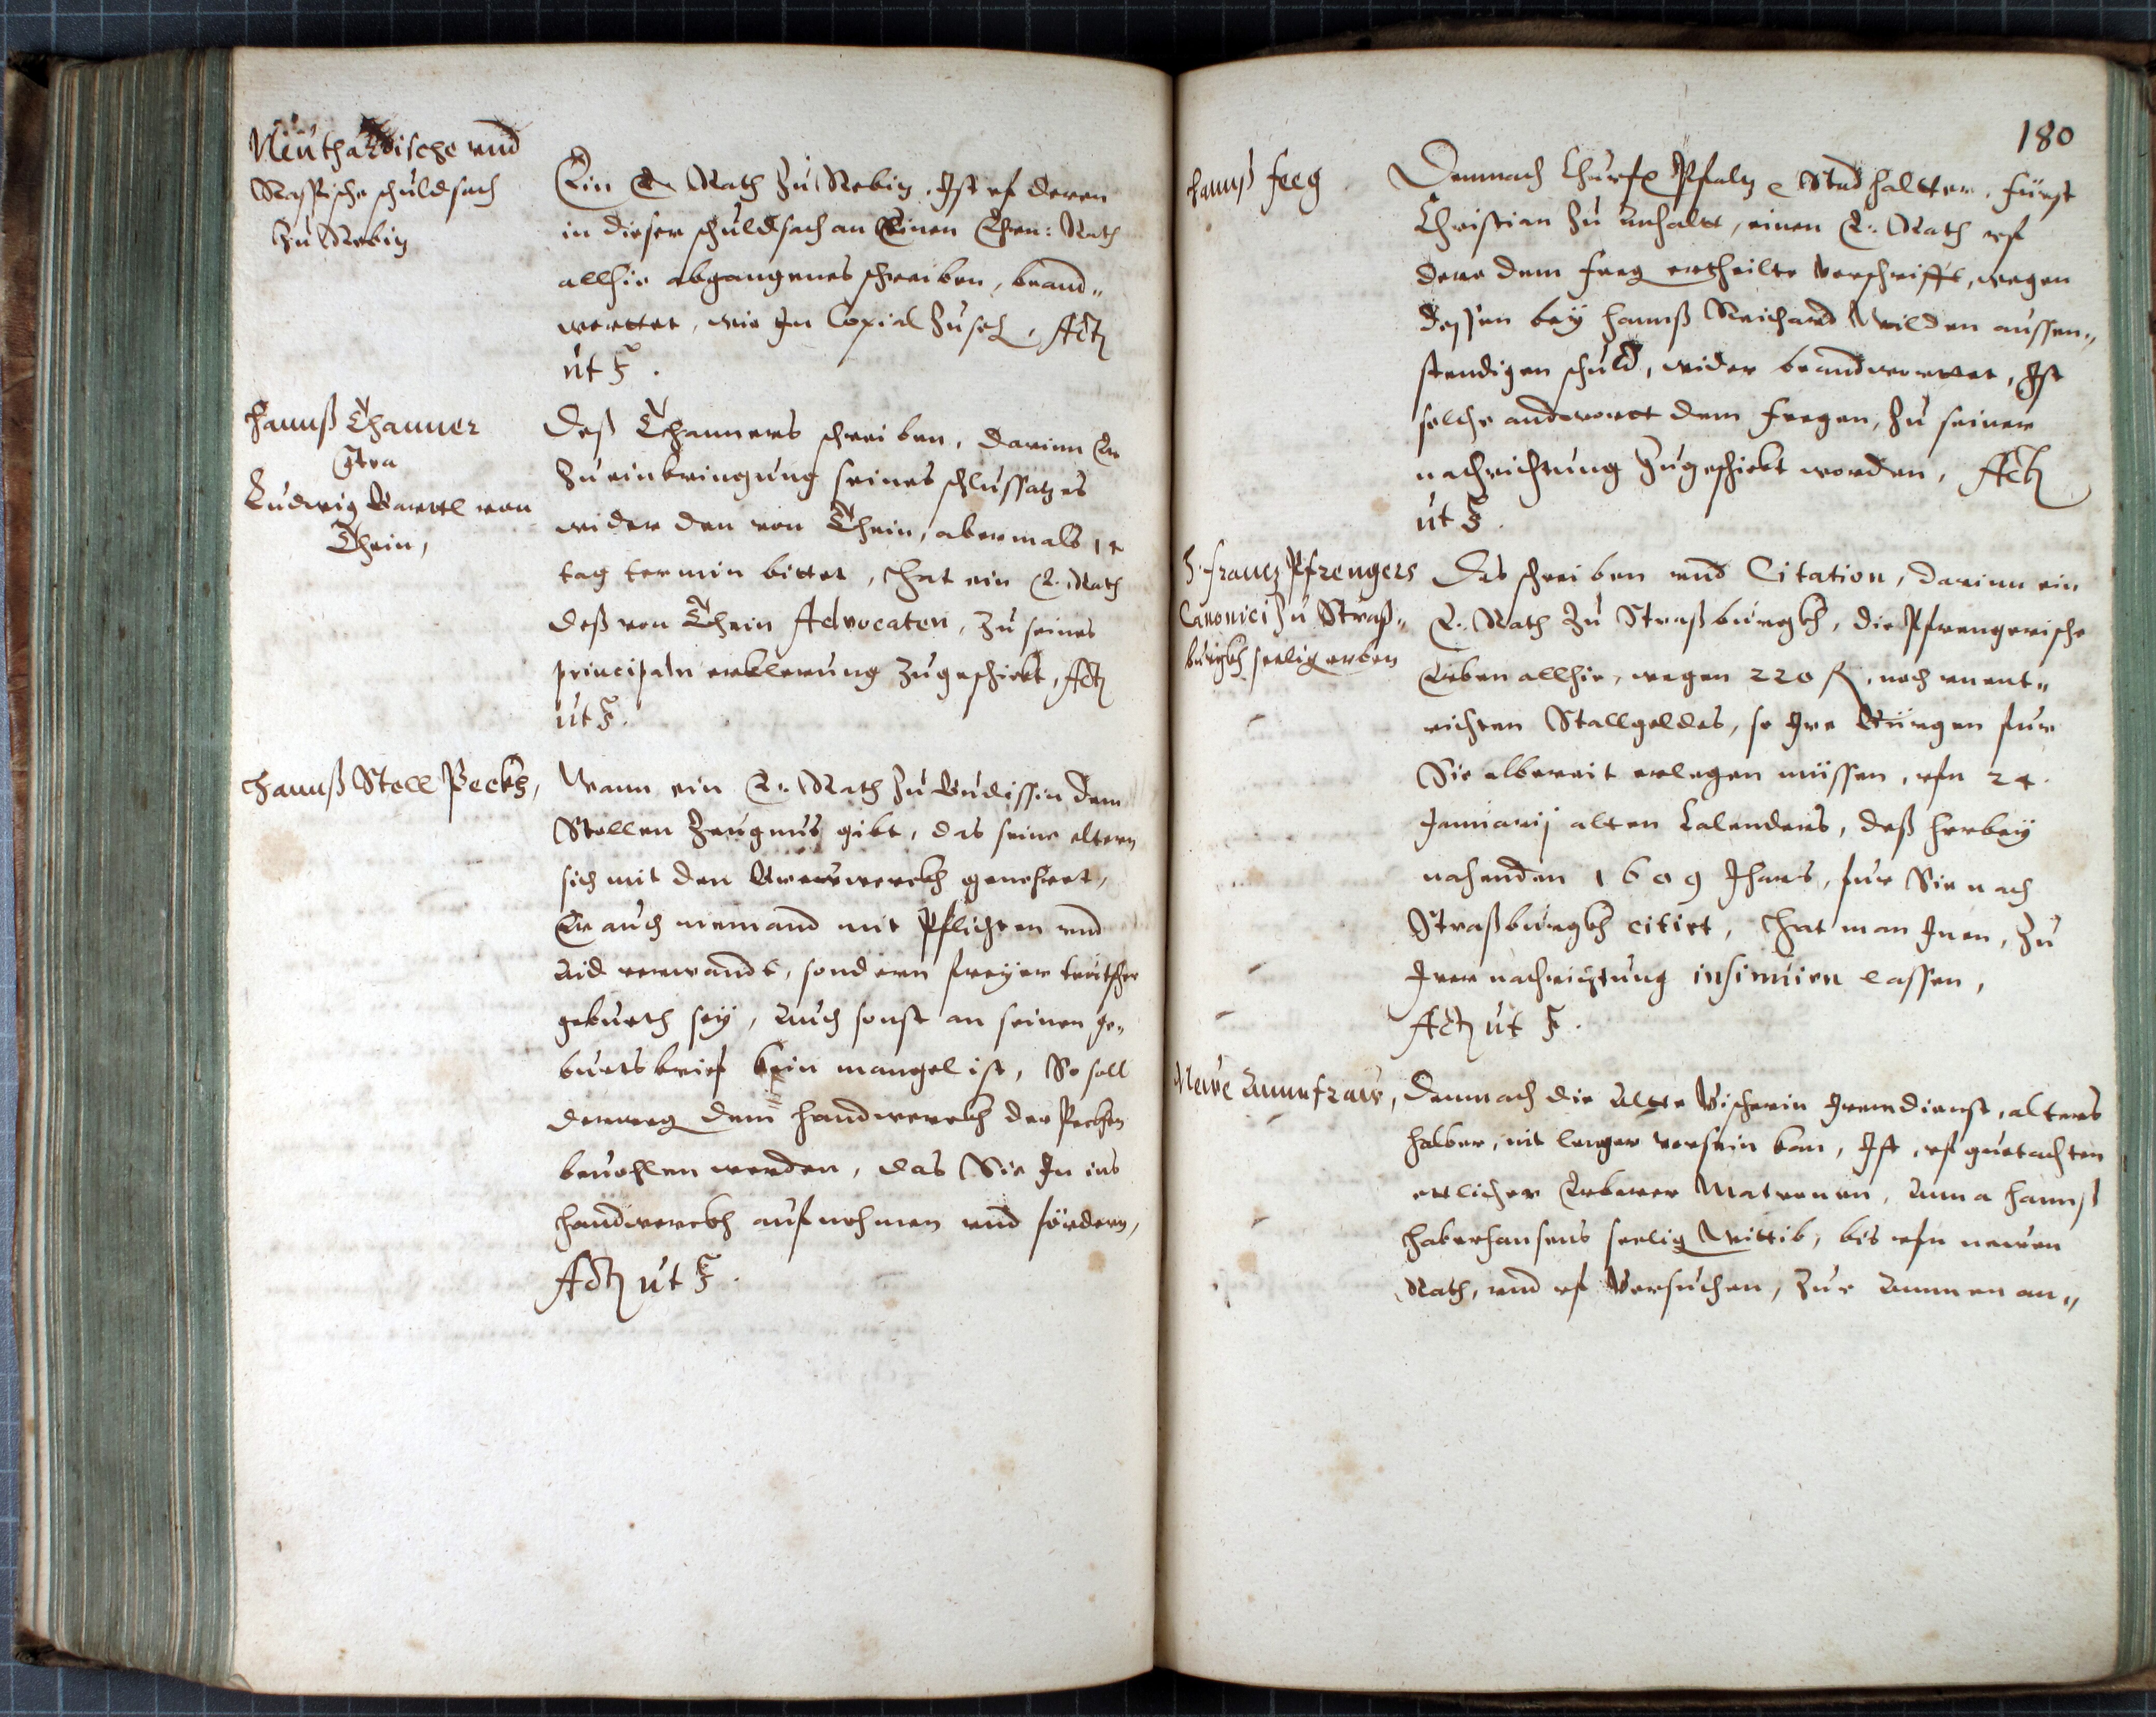 Neuthardische vnd
Rasische schuldsach
Zu Rebitz
Ein E. Rath Zu Rebitz, Ist vf deren
in dieser schuldsach an Einen Ehrn: Rath
allhie abgangenes schreiben, beand„
worttet, wie In Copial Zusehen, Act
ut s.
Hannß Thanner
Contra
Ludwig Barttl von
Thein,
Deß Thanners schreiben, darinn Er
Zu einbringung seines schlussatzes
wider den von Thein, abermals 14
tag termin bittet, Hat ein E. Rath
deß von Thein Advocaten, Zu seines
principaln erklerung Zugeschickt, Act
ut s.
Hannß Stoll Peckh,
Wann ein E. Rath Zu Budissin dem
Stollen Zeugnus gibt, das seine eltern
sich mit den Brewwerckh genehret,
Er auch niemand mit Pflichten vnd
Aid verwandt, sondern freyer teutscher
geburth sey, Auch sonst an seinen ge„
burtsbrief kein mangel ist, So soll
derweg dem handwerckh der Peckhen
beuohlen werden, das Sie In ins
Handwerckh aufnehmen vnd fördern,
Act ut s.
180
Hannß Feeg
Demnach Churf. Pfaltz Stadhaltter, Fürst
Christian Zu Anhaltt, einen E. Rath vf
dero dem Feeg ertheilte Vorschrifft, wegen
dessen bey Hannß Reichard Wilden aussen„
stendigen schuld, wider beandworttet, Ist
solche andwortt dem Feegen, Zu seiner
nachrichtung Zugeschickt worden, Act
ut s.
H. Frantz Pfrengers
Canonici Zu Straß„
burgkh seelig erben
Das schreiben vnd Citation, darinn ein
E. Rath Zu Straßburgkh, die Pfrengerische
Erben allhie, wegen 220 fl. noch vnent„
richten Stallgeldes, so Ire Bürgen fur
Sie albereit erlegen müssen, vfn 24.
Januarij alten Calenders, deß herbey
nahenden 1609 Jhars, fur Sie nach
Straßburgkh citirt, Hat man Inen, Zu
Irer nachrichtung insinuirn lassen,
Act ut s.
Newe Ammfraw,
Demnach die Alte Vischerin Irem dienst, alters
halber, nit lenger vorsein kan, Ist, vf guetachten
ettlicher Erbarer Matronen, Anna Hannß
Haberhansens seelig Wittib, bis vfn newen
Rath, vnd vf Versuchen, Zur Ammen an„